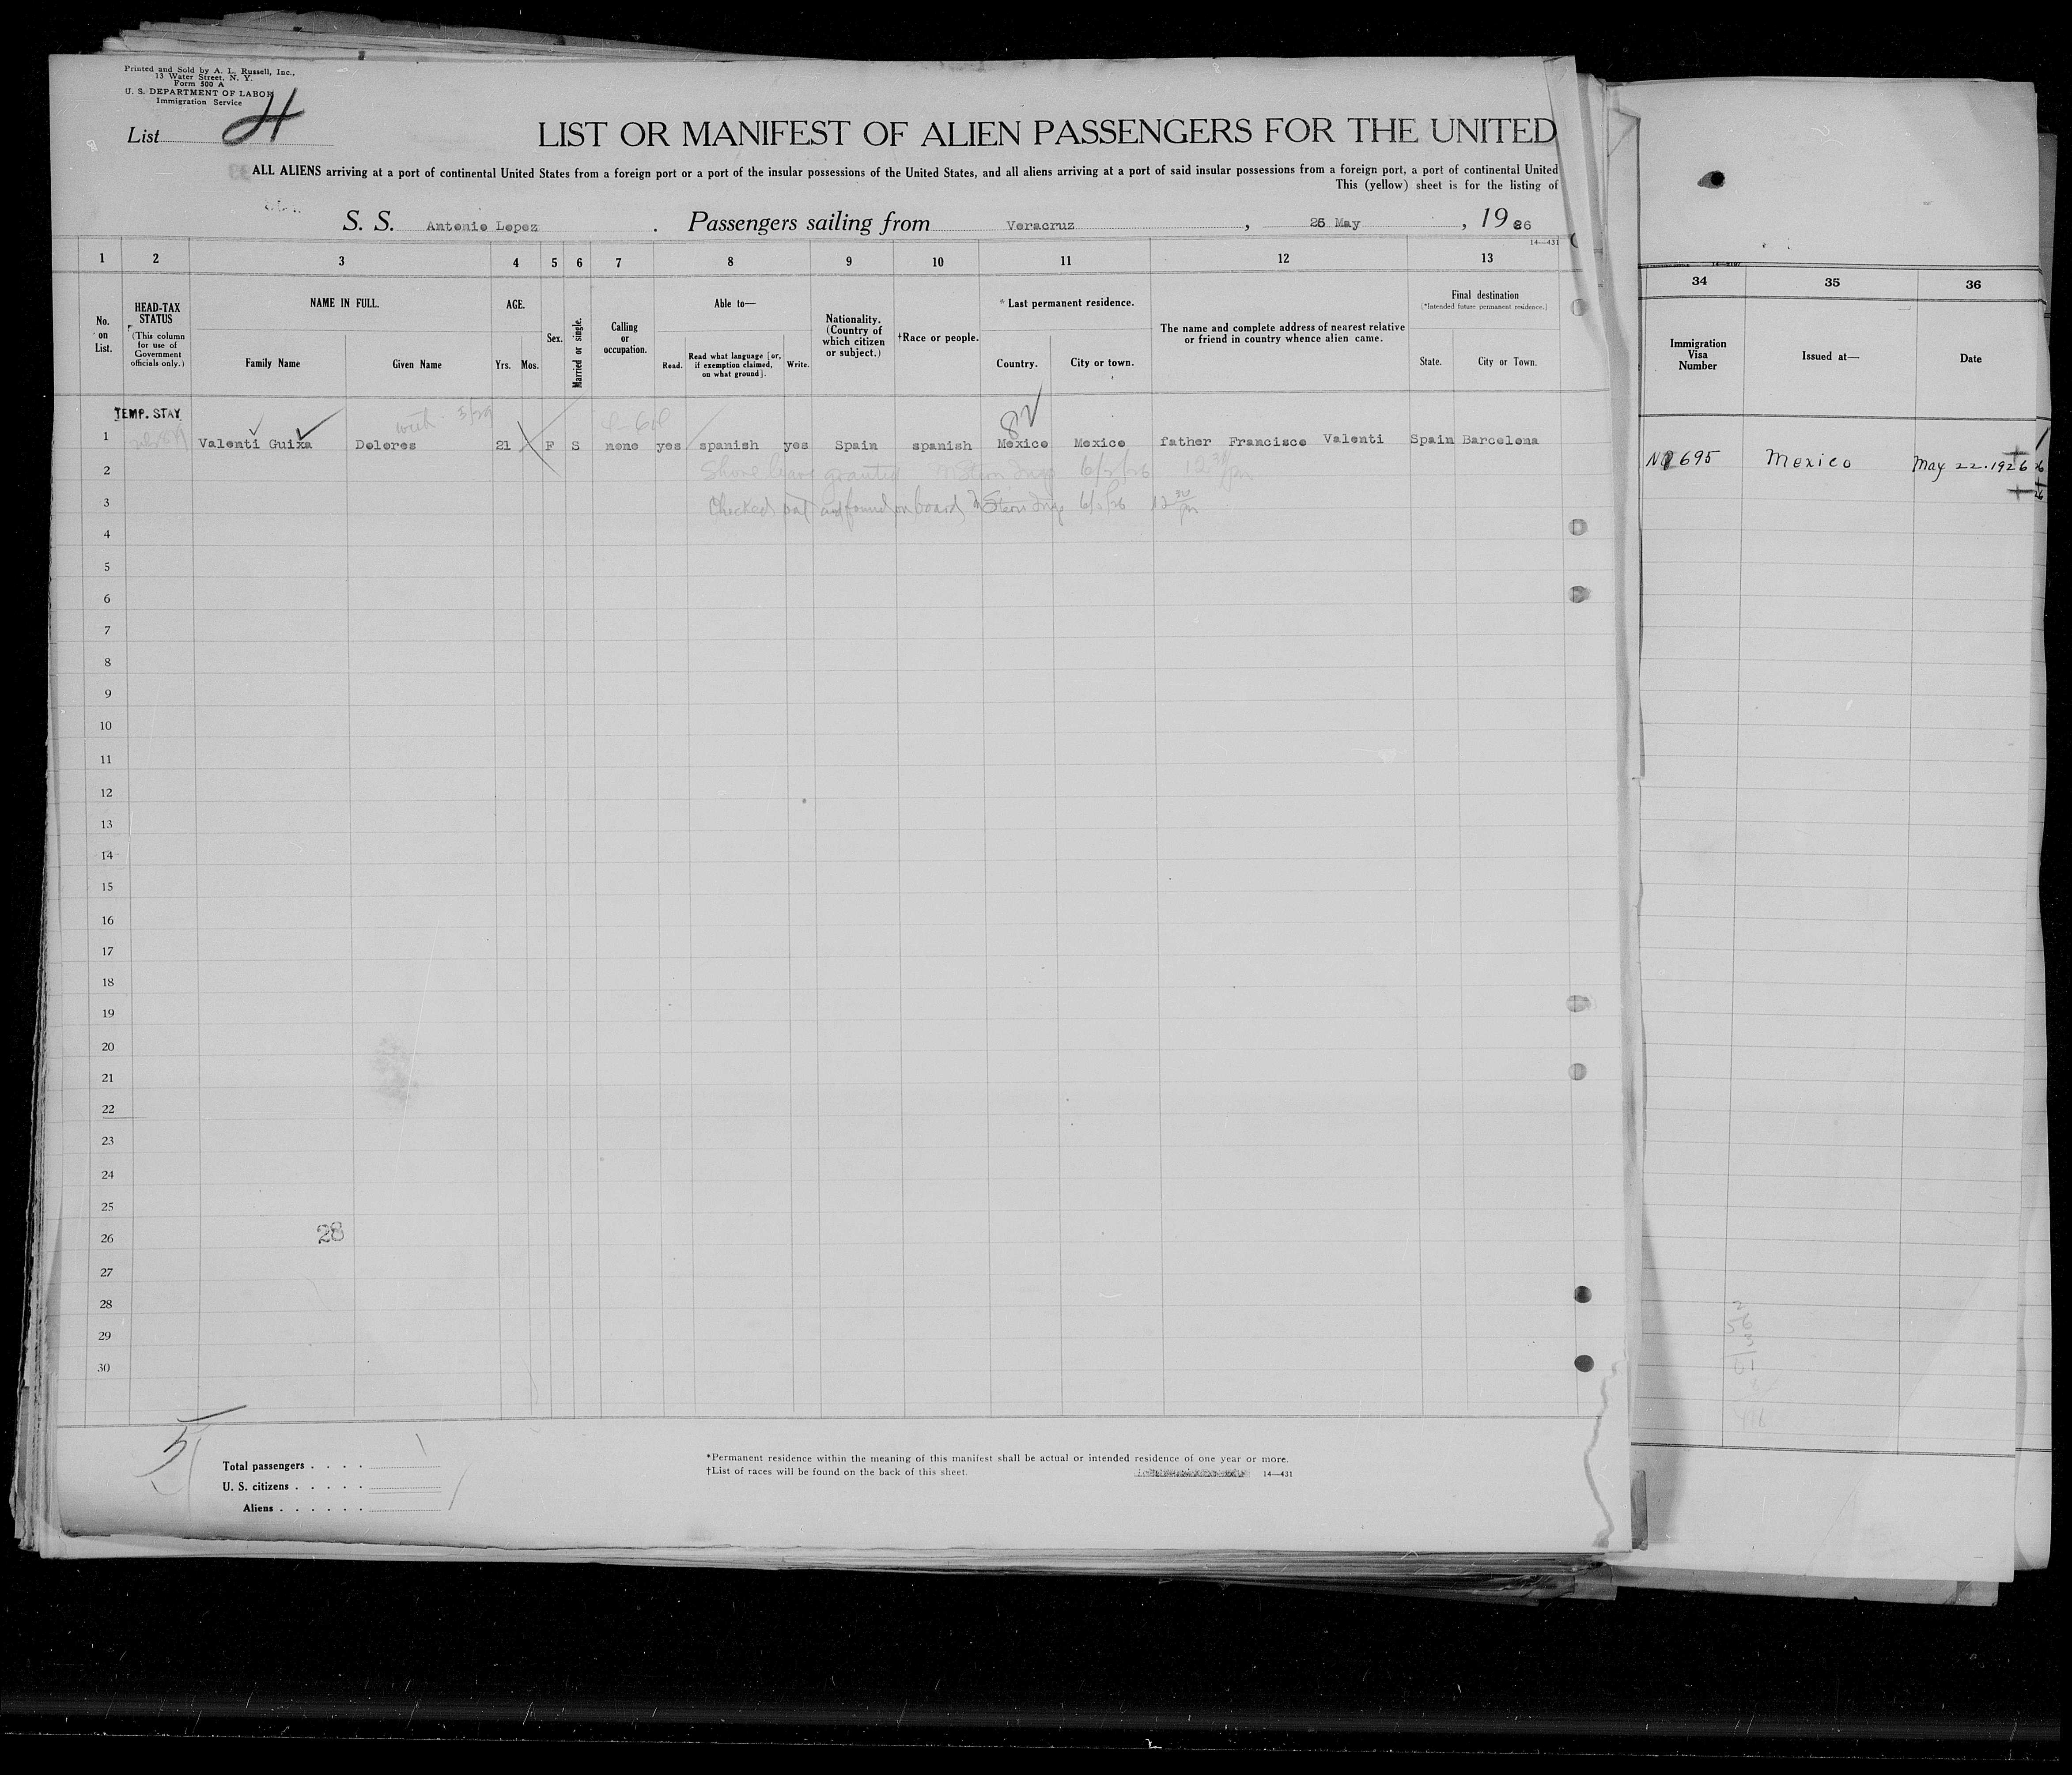 Printed and Sold by A. L. Russell, Inc.,
13 Water Street, N. Y.
Form 500 A
U. S. DEPARTMENT OF LABOR
Immigration Service
List 4
LIST OR MANIFEST OF ALIEN PASSENGERS FOR THE UNITED
ALL ALIENS arriving at a port of continental United States from a foreign port or a port of the insular possessions of the United States, and all aliens arriving at a port of said insular possessions from a foreign port, a port of continental United
This (yellow) sheet is for the listing of
S. S. Antonio Lopez . Passengers sailing from Veracruz , 25 May , 19 26
14—431
1 2 3 4 5 6 7 8 9 10 11 12 13
No. on List.
HEAD-TAX STATUS
(This column for use of Government officials only.)
NAME IN FULL.
Family Name Given Name
AGE.
Yrs. Mos.
Sex.
Married or single.
Calling or occupation.
Able to—
Read. Read what language [or, if exemption claimed, on what ground]. Write.
Nationality. (Country of which citizen or subject.)
†Race or people.
*Last permanent residence.
Country. City or town.
The name and complete address of nearest relative or friend in country whence alien came.
Final destination
(*Intended future permanent residence.)
State. City or Town.
34 35 36
Immigration Visa Number
Issued at—
Date
TEMP. STAY
with 3/29
82
1 Valenti Guixa Dolores 21 F S none yes spanish yes Spain spanish Mexico Mexico father Francisco Valenti Spain Barcelona
No 695 Mexico May 22. 1926
2 Shore leave granted M Stern Insp 6/2/26 12 30 pm
3 Checked out and found on board M Stern Insp 6/2/26 12 30 pm
4
5
6
7
8
9
10
11
12
13
14
15
16
17
18
19
20
21
22
23
24
25
26 28
27
28
29
30
5
Total passengers . . . .
U. S. citizens . . . . .
Aliens . . . . . .
*Permanent residence within the meaning of this manifest shall be actual or intended residence of one year or more.
†List of races will be found on the back of this sheet.
14—431